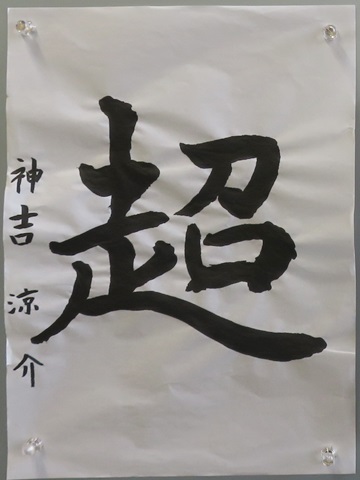 超
神吉涼介